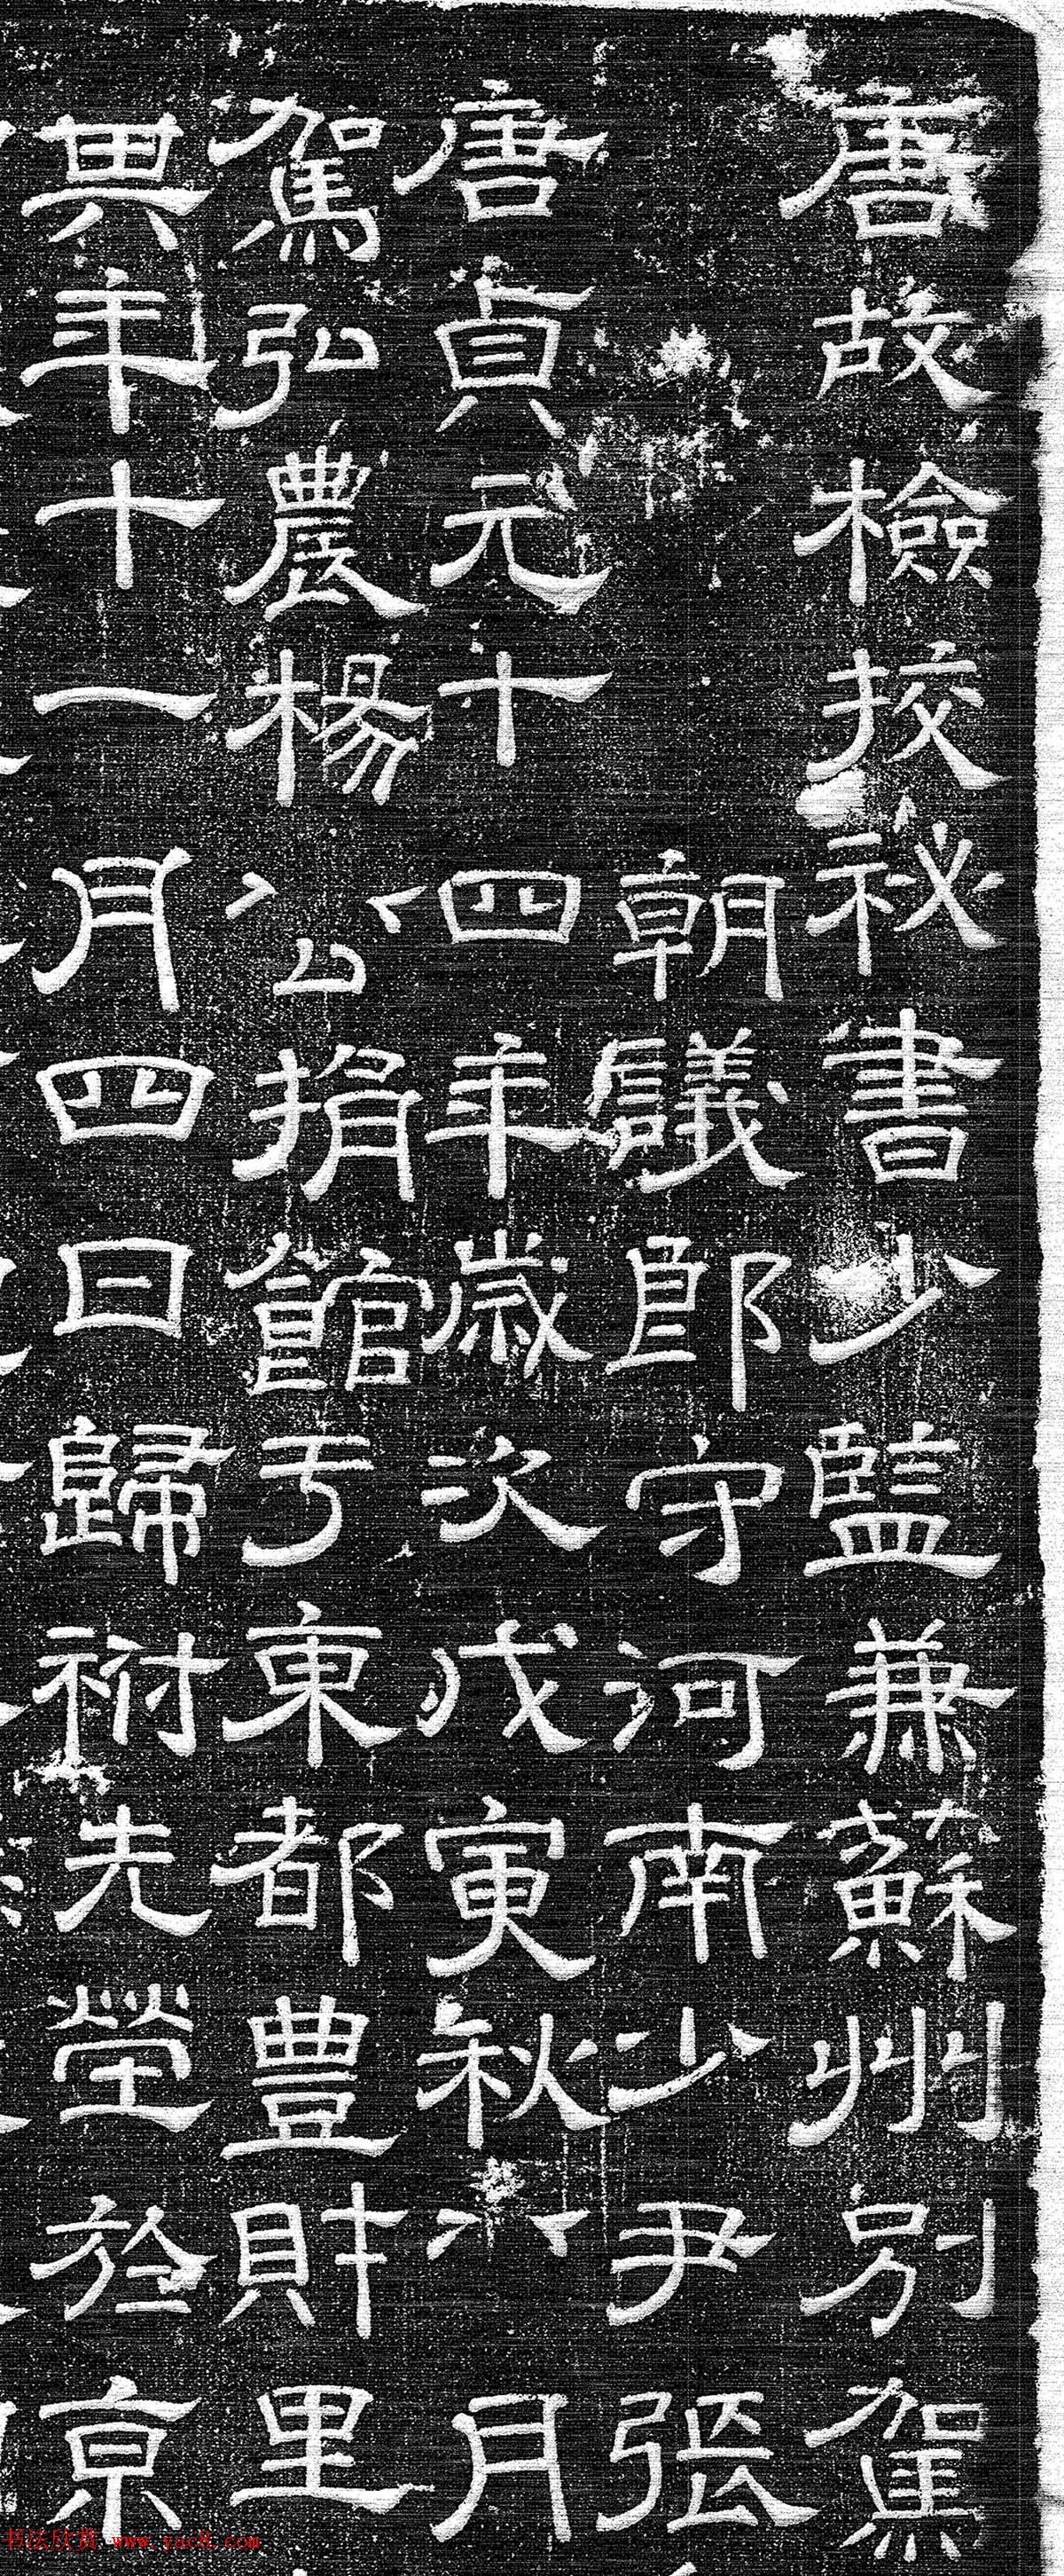 唐故檢挍秘書少監兼蘇州別駕
朝議郎守河南少尹張
唐貞元十四年歲次戊寅秋八月
駕弘農楊公捐館于東都豐財里
其年十一月四日歸祔先塋於京
书法欣赏 www.yac8.com